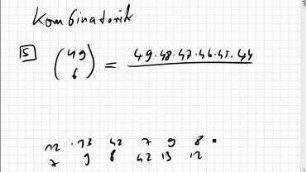 Kombinatorik
5 (49 6) = 49·48·47·46·45·44
12 · 13 42 7 9 8 ·
7 9 8 42 13 12